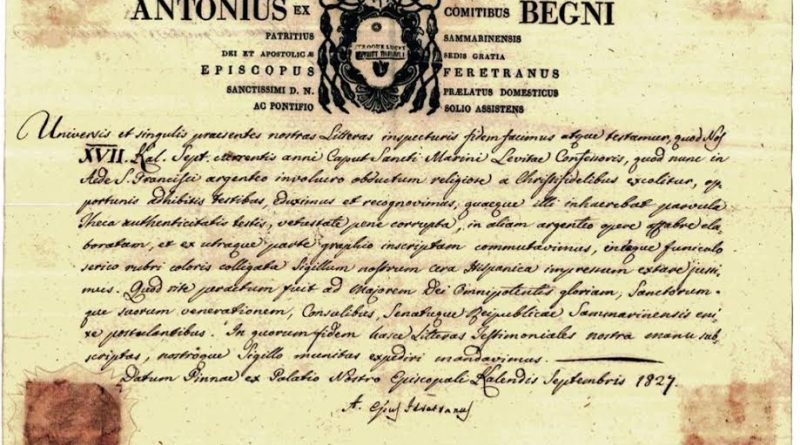 ANTONIUS EX COMITIBUS BEGNI
PATRITIUS SAMMARINENSIS
DEI ET APOSTOLICÆ SEDIS GRATIA
EPISCOPUS FERETRANUS
SANCTISSIMI D. N. PRÆLATUS DOMESTICUS
AC PONTIFIO SOLIO ASSISTENS
Universis et singulis praesentes nostras Litteras inspecturis fidem facimus atque testamur, quod Nos
XVII. Kal. Sept. currentis anni Caput Sancti Marini Levitae Confessoris, quod nunc in
Aede S. Francisci argenteo involucro obductum religiose a Christifidelibus excolitur, op-
portunis adhibitis testibus, duximus et recognovimus, quaeque illi inhaerebat parvula
theca authenticitatis testis, vetustate pene corrupta, in aliam argenteo opere affabre ela
boratam, et ex utraque parte graphio inscriptam commutavimus, inteque funiculo
serico rubri coloris colligata Sigillum nostrum cera Hispanica impressum extare jussi
mus. Quod rite peractum fuit ad Majorem Dei Omnipotentis gloriam, Sanctorum-
que suorum venerationem, Consulibus, Senatuque Reipublicae Sammarinensis eni
xe postulantibus. In quorum fidem hasce Litteras Testimoniales nostra manu sub
scriptas, nostroque Sigillo munitas expediri mandavimus.
Datum Pinnae ex Palatio Nostro Episcopali Kalendis Septembris 1827.
A.